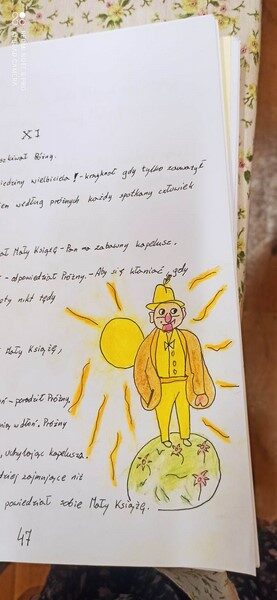 XI
zkiwał Próżny.
iedziny wielbiciela! - krzyknął gdy tylko zauważył
iem według próżnych każdy spotkany człowiek
ał Mały Książę - Pan ma zabawny kapelusz.
- odpowiedział Próżny. - Aby się kłaniać, gdy
oty nikt tędy
Mały Książę,
- poradził Próżny,
dłoń. Próżny
, uchylając kapelusza.
dziej zajmujące niż
powiedział sobie Mały Książę.
47